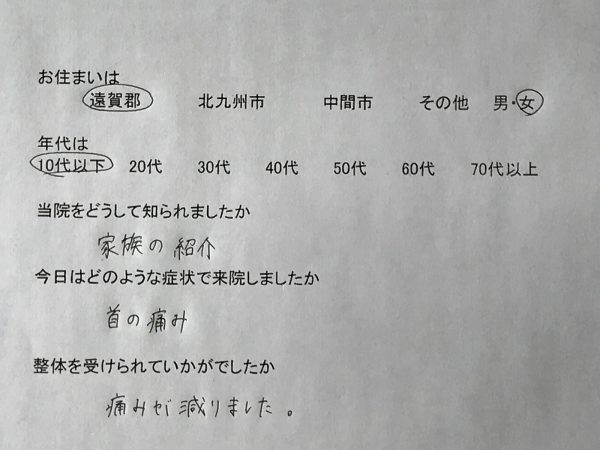 お住まいは
遠賀郡 北九州市 中間市 その他 男・女
年代は
10代以下 20代 30代 40代 50代 60代 70代以上
当院をどうして知られましたか
家族の紹介
今日はどのような症状で来院しましたか
首の痛み
整体を受けられていかがでしたか
痛みが減りました。